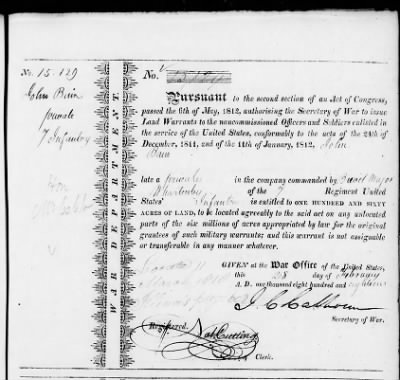 No. 15.129
John Bain
private
7 Infantry
WAR DEPARTMENT.
No.
Pursuant to the second section of an Act of Congress,
passed the 6th of May, 1812, authorising the Secretary of War to issue
Land Warrants to the noncommissioned Officers and Soldiers enlisted in
the service of the United States, conformably to the acts of the 24th of
December, 1811, and of the 11th of January, 1812, John
Bain
late a private in the company commanded by Major
of the 7 Regiment United
States' Infantry is entitled to ONE HUNDRED AND SIXTY
ACRES OF LAND, to be located agreeably to the said act on any unlocated
parts of the six millions of acres appropriated by law for the original
grantees of such military warrants; and this warrant is not assignable
or transferable in any manner whatever.
GIVEN at the War Office of the United States,
this 28 day of February
A. D. one thousand eight hundred and eighteen
J. C. Calhoun
Secretary of War.
Registered.
Nat Cutting
Clerk.